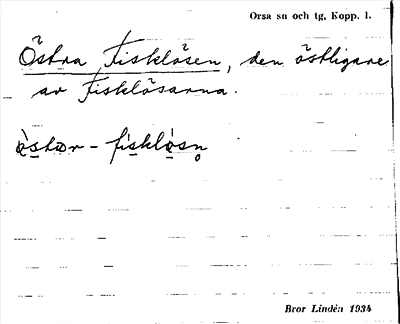 Orsa sn och tg, Kopp. l.
Östra Fisklösen, den östligare
av Fisklösarna.
òstær - fìsklòsn̥
Bror Lindén 1934